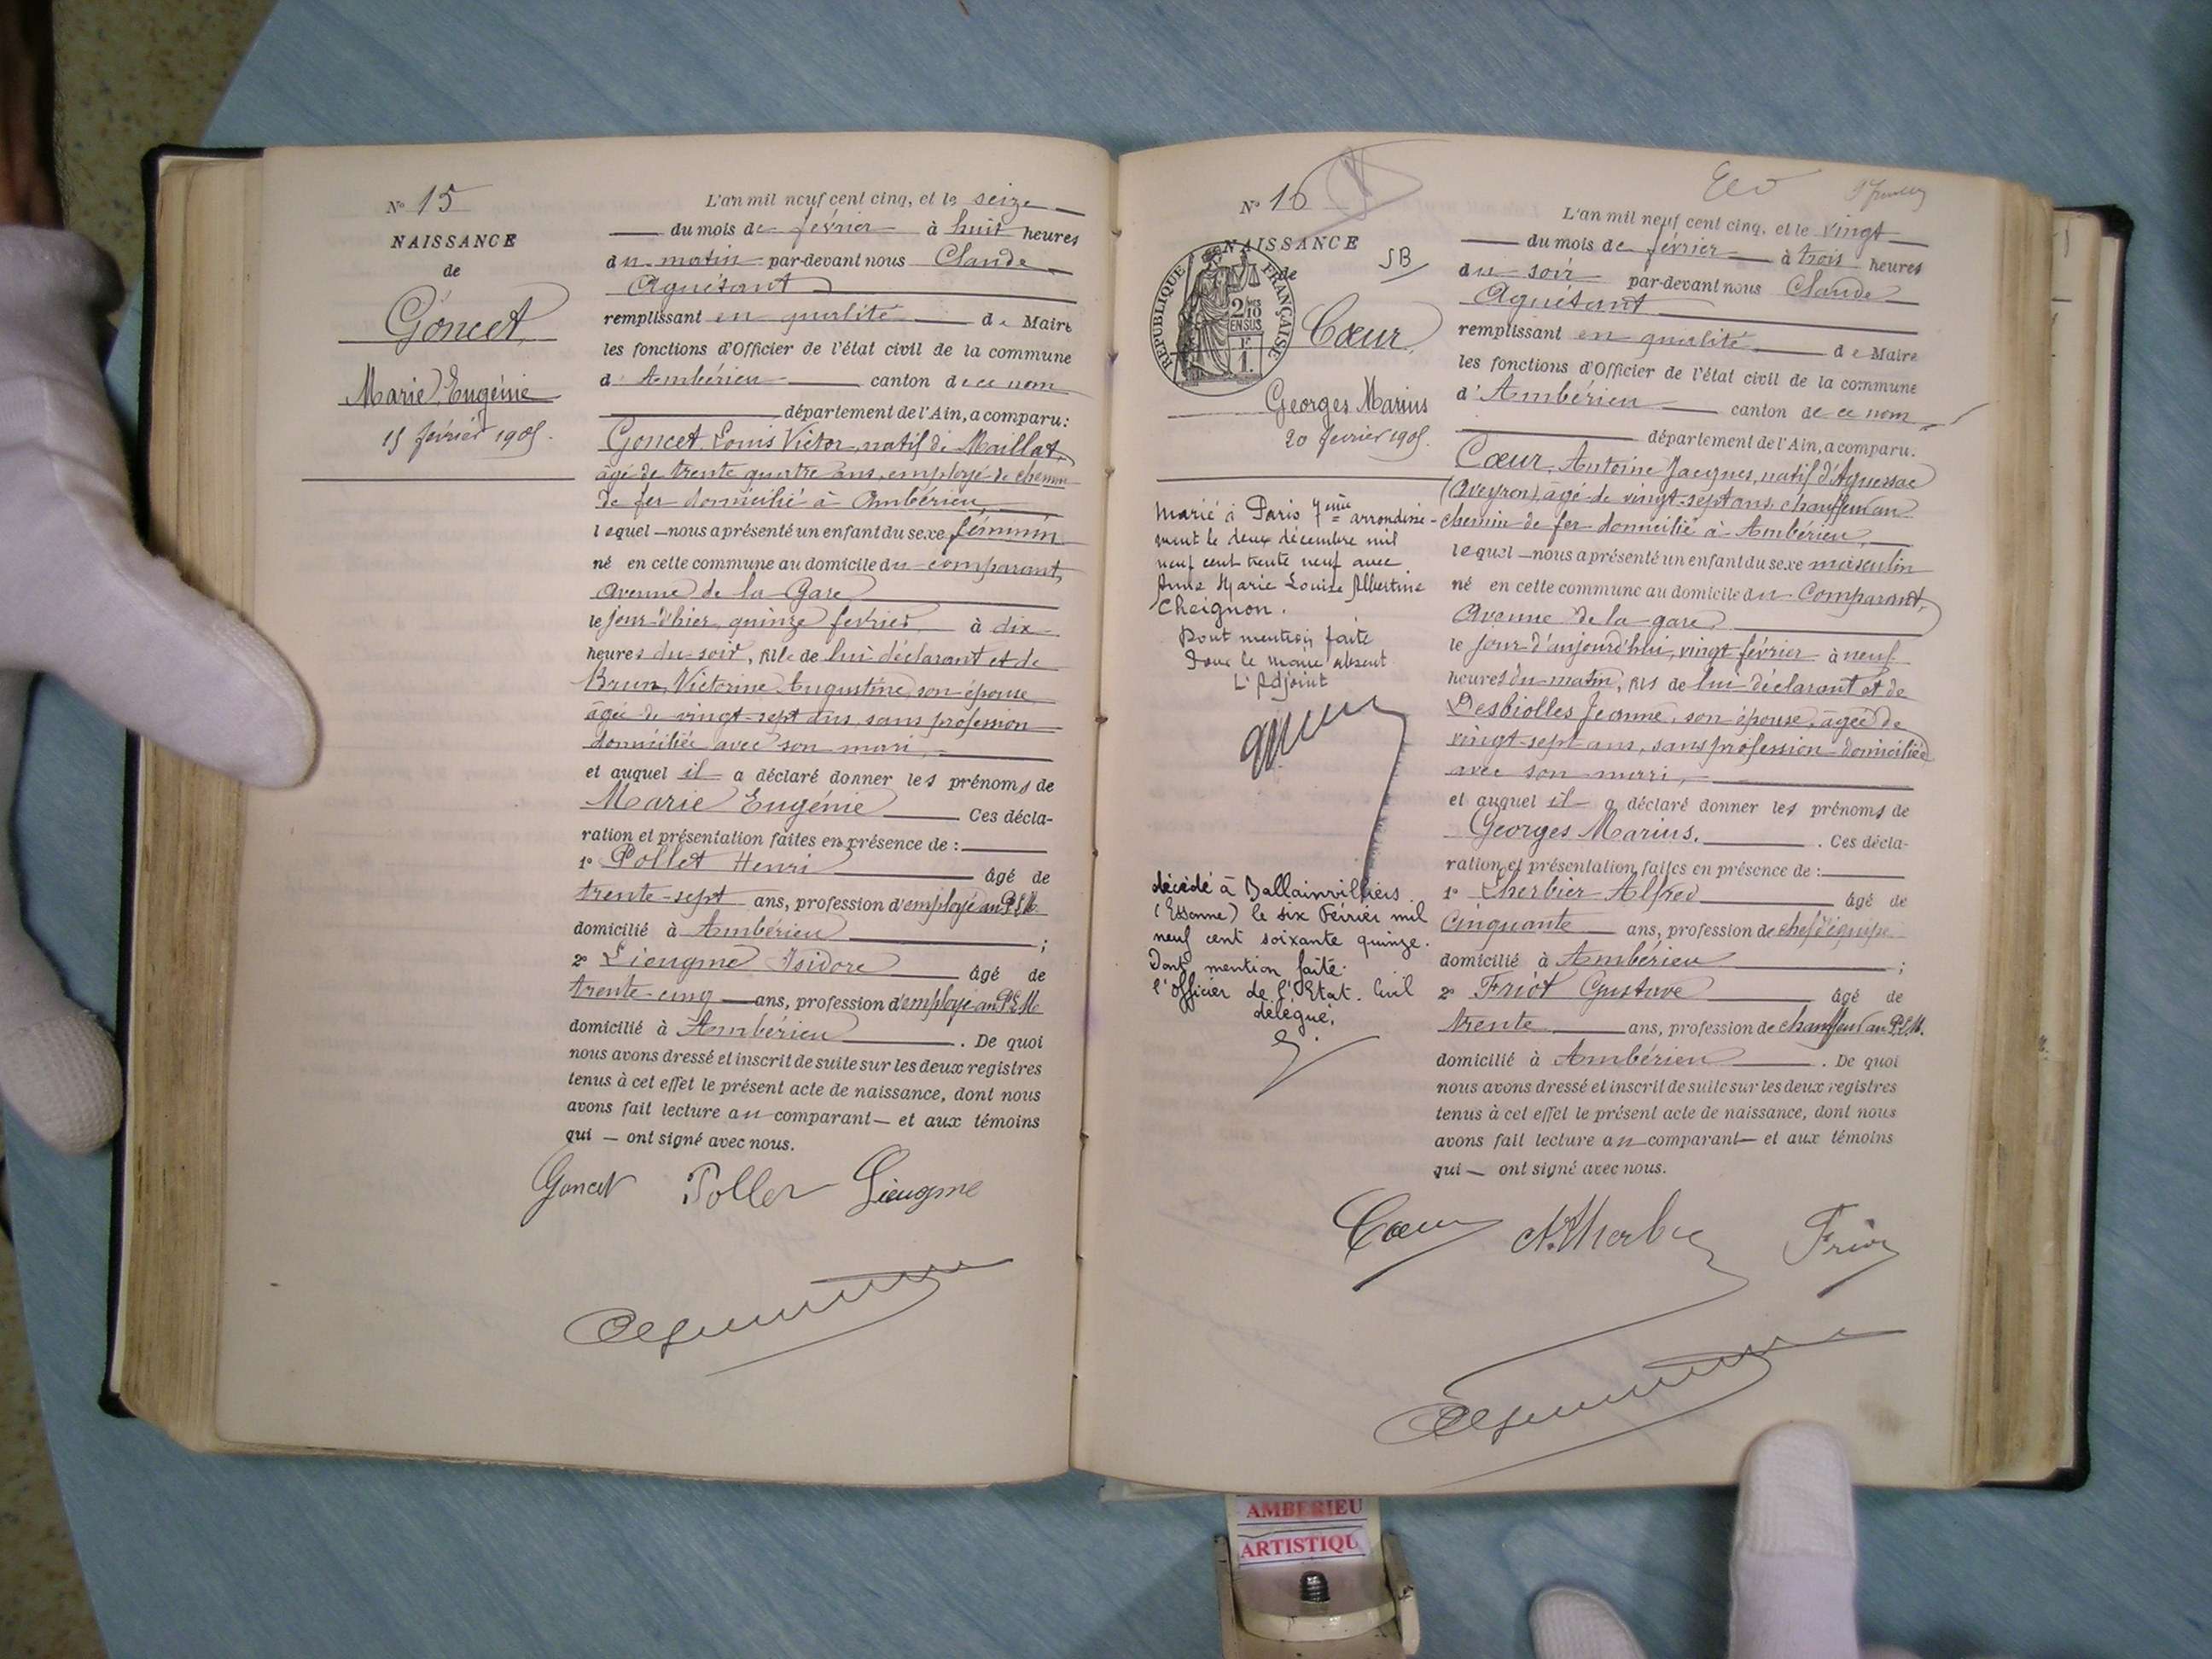 N° 15
NAISSANCE
de
Goncet
Marie Eugénie
15 février 1905.
L'an mil neuf cent cinq, et le seize
du mois de février à huit heures
du matin par-devant nous Claude
Aguétant
remplissant en qualité de Maire
les fonctions d'Officier de l'état civil de la commune
d'Ambérieu canton de ce nom
département de l'Ain, a comparu:
Goncet Louis Victor, natif de Maillat,
âgé de trente quatre ans, employé de chemin
de fer domicilié à Ambérieu,
lequel nous a présenté un enfant du sexe féminin
né en cette commune au domicile du comparant,
Avenue de la Gare
le jour d'hier, quinze février à dix
heures du soir, fille de lui déclarant et de
Brun, Victorine Augustine, son épouse
âgée de vingt-sept ans, sans profession
domiciliée avec son mari,
et auquel il a déclaré donner les prénoms de
Marie Eugénie Ces décla-
ration et présentation faites en présence de :
1° Pollet Henri âgé de
trente-sept ans, profession d'employé au P.L.M.
domicilié à Ambérieu ;
2° Lieugme Isidore âgé de
trente-cinq ans, profession d'employé au P.L.M.
domicilié à Ambérieu . De quoi
nous avons dressé et inscrit de suite sur les deux registres
tenus à cet effet le présent acte de naissance, dont nous
avons fait lecture au comparant et aux témoins
qui ont signé avec nous.
Goncet Pollet Lieugme
N° 16
NAISSANCE
de
SB
REPUBLIQUE FRANÇAISE
2/10
EN SUS
1.
Cœur,
Georges Marius
20 février 1905.
Marié à Paris 7ème arrondisse-
ment le deux décembre mil
neuf cent trente neuf avec
Anne Marie Louise Albertine
Cheignon.
Dont mention faite
Pour le maire absent
L'Adjoint
décédé à Ballainvilliers
(Essonne) le six Février mil
neuf cent soixante quinze.
Dont mention faite.
l'Officier de l'Etat. Civil
délégué,
L'an mil neuf cent cinq, et le vingt
du mois de février à trois heures
du soir par-devant nous Claude
Aguétant
remplissant en qualité de Maire
les fonctions d'Officier de l'état civil de la commune
d'Ambérieu canton de ce nom
département de l'Ain, a comparu.
Cœur, Antoine Jacques, natif d'Aguessac
(Aveyron), âgé de vingt-sept ans, chauffeur au
chemin de fer domicilié à Ambérieu,
lequel nous a présenté un enfant du sexe masculin
né en cette commune au domicile du Comparant,
Avenue de la gare
le jour d'aujourd'hui, vingt février à neuf
heures du matin, fils de lui déclarant et de
Desbiolles Jeanne, son épouse, âgée de
vingt-sept ans, sans profession domiciliée
avec son mari,
et auquel il a déclaré donner les prénoms de
Georges Marius. . Ces décla-
ration et présentation faites en présence de :
1° Lherbier Alfred âgé de
Cinquante ans, profession de chef d'équipe
domicilié à Ambérieu ;
2° Friot Gustave âgé de
trente ans, profession de chauffeur au P.L.M.
domicilié à Ambérieu . De quoi
nous avons dressé et inscrit de suite sur les deux registres
tenus à cet effet le présent acte de naissance, dont nous
avons fait lecture au comparant et aux témoins
qui ont signé avec nous.
Cœur A. Lherbier Friot
AMBERIEU
ARTISTIQU